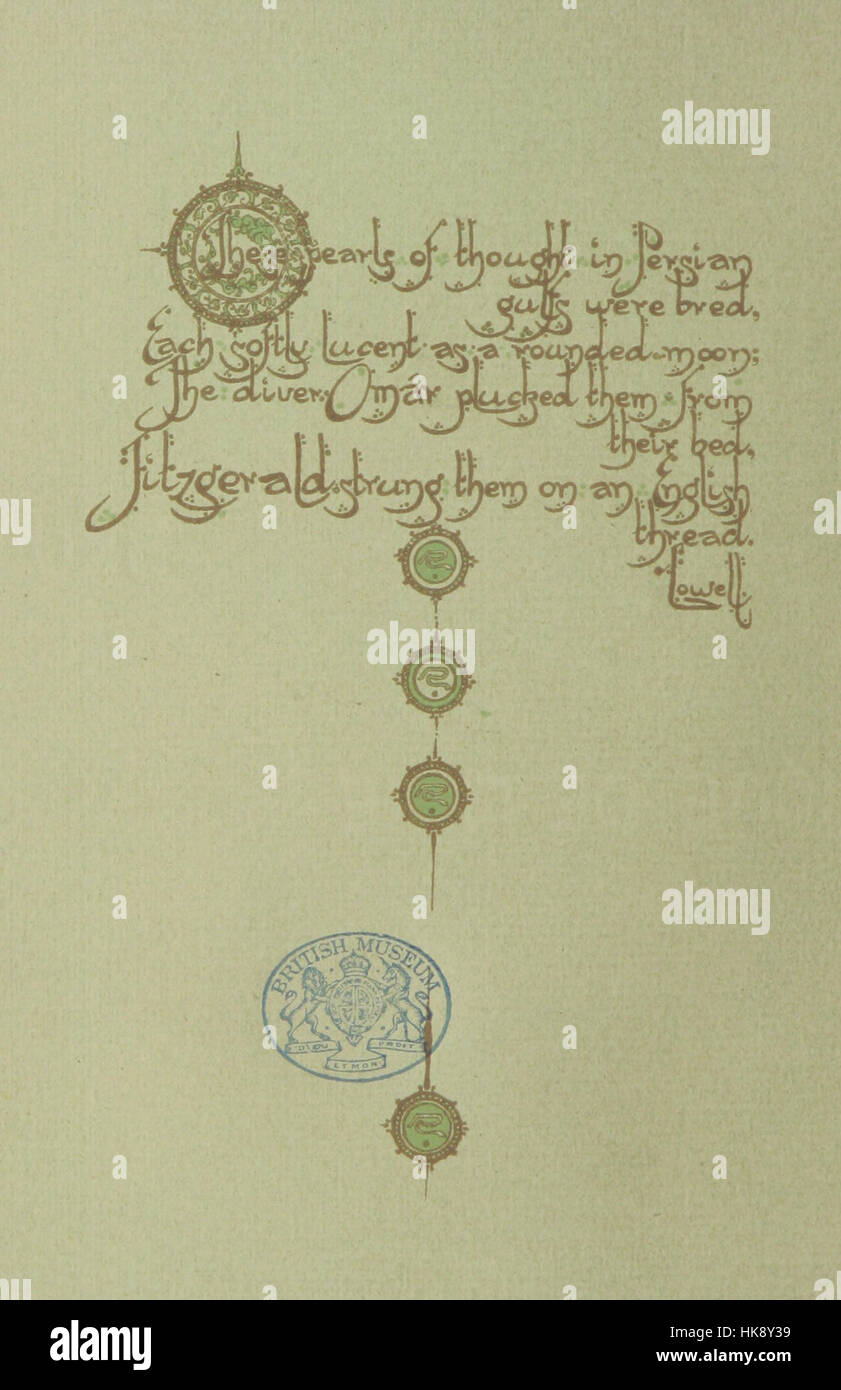 These pearls of thought in Persian
gulfs were bred,
Each softly lucent as a rounded moon;
The diver Omár plucked them from
their bed,
Fitzgerald strung them on an English
thread.
Lowell.
BRITISH MUSEUM
DIEU ET MON DROIT
a
alamy
alamy
Image ID: HK8Y39
www.alamy.com